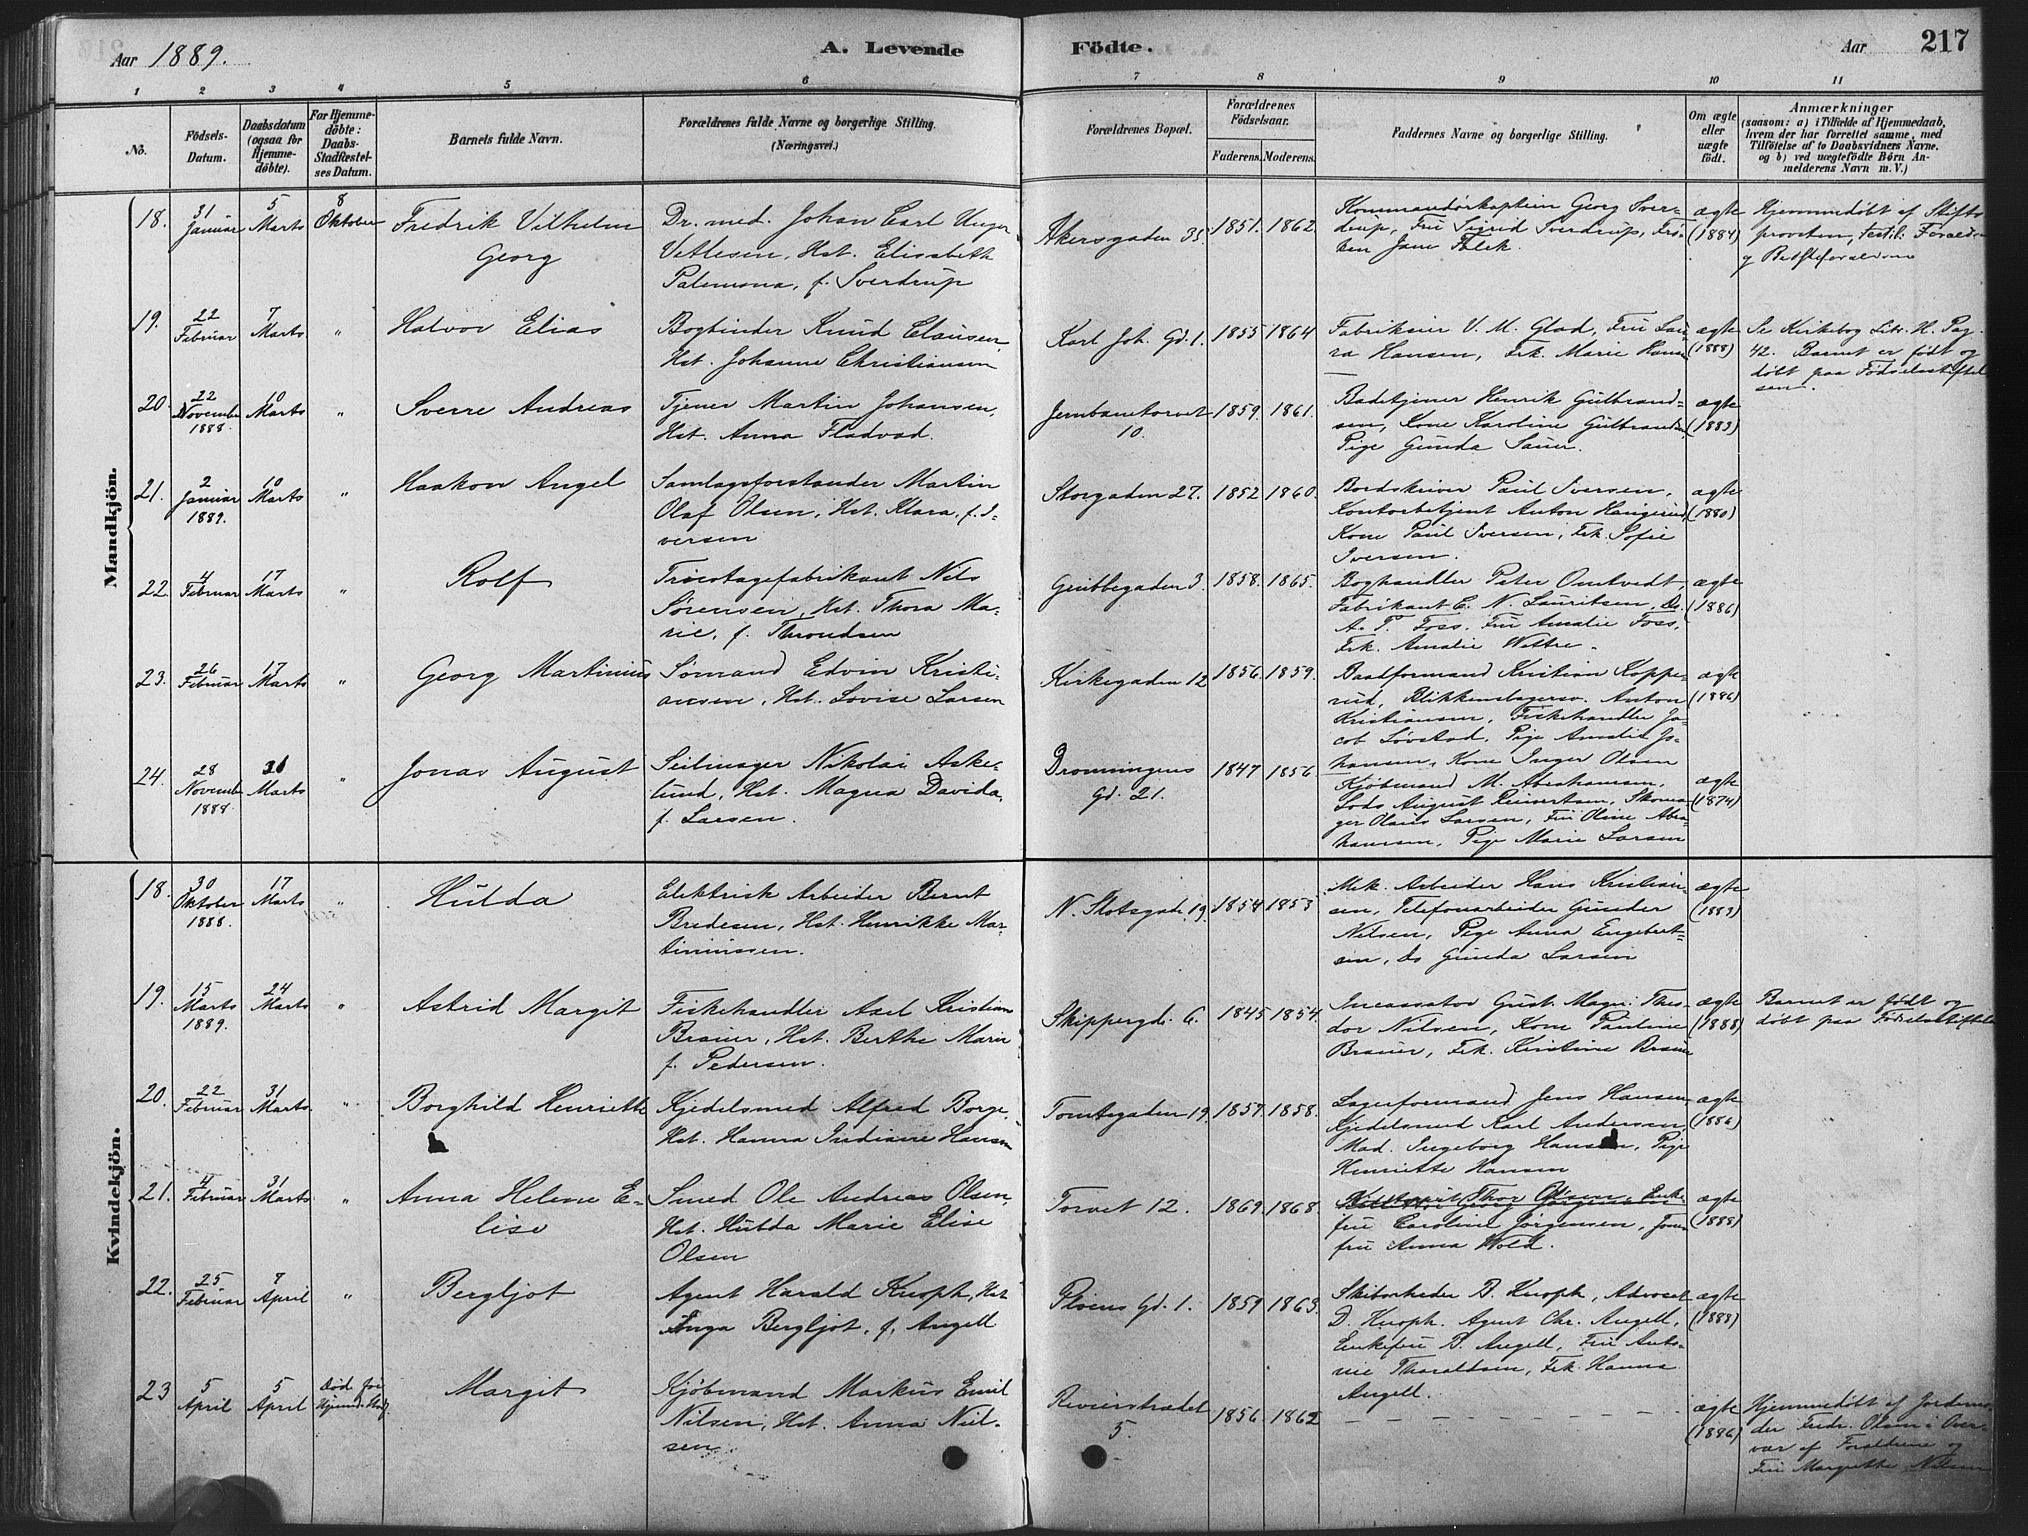 Aar 1889.
A. Levende Födte.
Aar
217
1 2 3 4 5 6 7 8 9 10 11
No.
Födsels-Datum.
Daabsdatum (ogsaa for Hjemme-döbte).
For Hjemme-döbte: Daabs-Stadfæstel-ses Datum.
Barnets fulde Navn.
Forældrenes fulde Navne og borgerlige Stilling. (Næringsvei.)
Forældrenes Bopæl.
Forældrenes Födselsaar.
Faderens. Moderens.
Faddernes Navne og borgerlige Stilling.
Om ægte eller uægte födt.
Anmærkninger
(saasom: a) i Tilfælde af Hjemmedaab,
hvem der har forrettet samme, med
Tilföielse af to Daabsvidners Navne.
og b) ved uægtefödte Börn An-
melderens Navn m. V.)
Mandkjön.
18. 31 Januar 5 Marts 8 Oktober
Fredrik Vilhelm
Georg
Dr. med. Johan Carl Unger
Vetlesen, Hst. Elisabeth
Palemona, f. Sverdrup
Akersgaden 35. 1851. 1862.
Kommandørkaptein Georg Sver-
drup, Fru Sigrid Sverdrup, Frø-
ken Jane Falck.
ægte (1884)
Hjemmedøbt af Stifts
provsten, testib: Forældre
og Bedsteforældrene
19. 22 Februar 7 Marts "
Halvor Elias
Bogbinder Knud Clausen,
Hst. Johanne Christiansen
Karl Joh. Gd. 1. 1855 1864
Fabrikeier V. M. Glad, Fru Lau-
ra Hansen, Frk. Marie Hansen
ægte (1888)
Se Kirkebog Litr. H. Pag.
42. Barnet er født og
døbt paa Fødselsstiftel
sen.
20. 22 November 1888. 10 Marts "
Sverre Andreas
Tjener Martin Johansen,
Hst. Anna Fladvad.
Jernbanetorvet 10. 1859. 1861.
Badetjener Henrik Gulbrand-
sen, Kone Karoline Gulbrandsen,
Pige Gunda Sauer.
ægte (1883)
21. 2 Januar 1889. 10 Marts "
Haakon Angel
Samlagsforstander Martin
Olaf Olsen, Hst. Klara, f. I-
versen
Storgaden 27. 1852 1860.
Bordskriver Paul Iversen,
Kontorbetjent Anton Haugerud,
Kone Paul Iversen, Frk. Sofie
Iversen.
ægte (1880)
22. 4 Februar 17 Marts "
Rolf
Tricotagefabrikant Nils
Sørensen, Hst. Thora Ma-
rie, f. Throndsen
Grubbegaden 3. 1858. 1865.
Boghandler Peter Omtvedt
Fabrikant C. N. Lauritsen, Do.
A. T. Foss. Fru Amalie Foss,
Frk. Amalie Wettre.
ægte (1886)
23. 26 Februar 17 Marts "
Georg Martinius
Sømand Edvin Kristi-
ansen, Hst. Lovise Larsen
Kirkegaden 12 1856. 1859.
Baadformand Kristian Koppe-
rud, Blikkenslagersv. Anton
Kristiansen, Fiskehandler Ja-
cob Løvstad, Pige Amalie Jo-
hansen, Kone Inger Olsen
ægte (1886)
24. 28 November 1888 31 Marts "
Jonas August
Seilmager Nikolai Aske-
lund, Hst. Magna Davida,
f. Larsen.
Dronningens Gd. 21. 1847 1856
Kjøbmand M. Abrahamsen,
Lods August Reinertsen, Skoma-
ger Olaus Larsen, Fru Oline Abra-
hamsen, Pige Marie Larsen
ægte (1874)
Kvindekjön.
18. 30 Oktober 1888. 17 Marts "
Hulda
Elektrisk Arbeider Bernt
Bredesen, Hst. Henrikke Mar-
tiniussen.
N. Slotsgade 19. 1854 1853
Mek. Arbeider Hans Kristian-
sen, Telefonarbeider Gunder
Nilsen, Pige Anna Engebret-
sen, do Gunda Larsen
ægte (1883)
19. 15 Marts 1889. 24 Marts "
Astrid Margit
Fiskehandler Axel Kristian
Brauer, Hst. Berthe Marie
f. Pedersen.
Skippergd. 6. 1845 1854
Incassator Gust. Magn. Theo-
dor Nilsen, Kone Pauline
Brauer, Frk. Kristine Brauer
ægte (1888)
Barnet er født og
døbt paa Fødselsstiftel
20. 22 Februar 31 Marts. "
Borghild Henriette
Kjedelsmed Alfred Borge,
Hst. Hanna Indiane Hansen
Tomtegaden 19. 1857. 1858.
Lagerformand Jens Hansen
Kjedelsmed Karl Andersen,
Mad. Ingeborg Hansen, Pige
Henriette Hansen
ægte (1886)
21. 4 Februar 31 Marts "
Anna Helene E-
lise
Smed Ole Andreas Olsen,
Hst. Hulda Marie Elise
Olsen
Torvet 12. 1869. 1868.
Georg Jørgensen Enke-
fru Caroline Jørgensen, Jom-
fru Anna Wold.
ægte (1888)
22. 25 Februar 7 April "
Bergljot
Agent Harald Knoph, Hst
Inga Bergljot, f. Angell
Pløens Gd. 1. 1859 1863.
Skibsrheder B. Knoph, Advocat
D. Knoph. Agent Chr. Angell,
Enkefru B. Angell, Fru Anto-
nie Tharaldsen, Frk. Hanna
Angell.
ægte (1888)
23 5 April 5 April
Død før Hjemd. Stadf.
Margit
Kjøbmand Markus Emil
Nilsen, Hst. Anna Niel-
sen
Revierstrædet 5. 1856. 1862
ægte (1886)
Hjemmedøbt af Jordemo-
der Fredr. Olsen i Over-
vær af Forældrene og
Fru Margrethe Nilsen